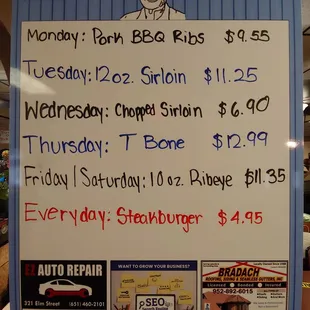 Monday: Pork BBQ Ribs $9.55
Tuesday: 12oz. Sirloin $11.25
Wednesday: Chopped Sirloin $6.90
Thursday: T Bone $12.99
Friday/Saturday: 10oz. Ribeye $11.35
Everyday: Steakburger $4.95
EZ AUTO REPAIR
321 Elm Street (651) 460-2101
WANT TO GROW YOUR BUSINESS?
SEO
BRADACH
ROOFING, SIDING & SEAMLESS GUTTERS, INC.
Licensed Bonded Insured
952-892-6015